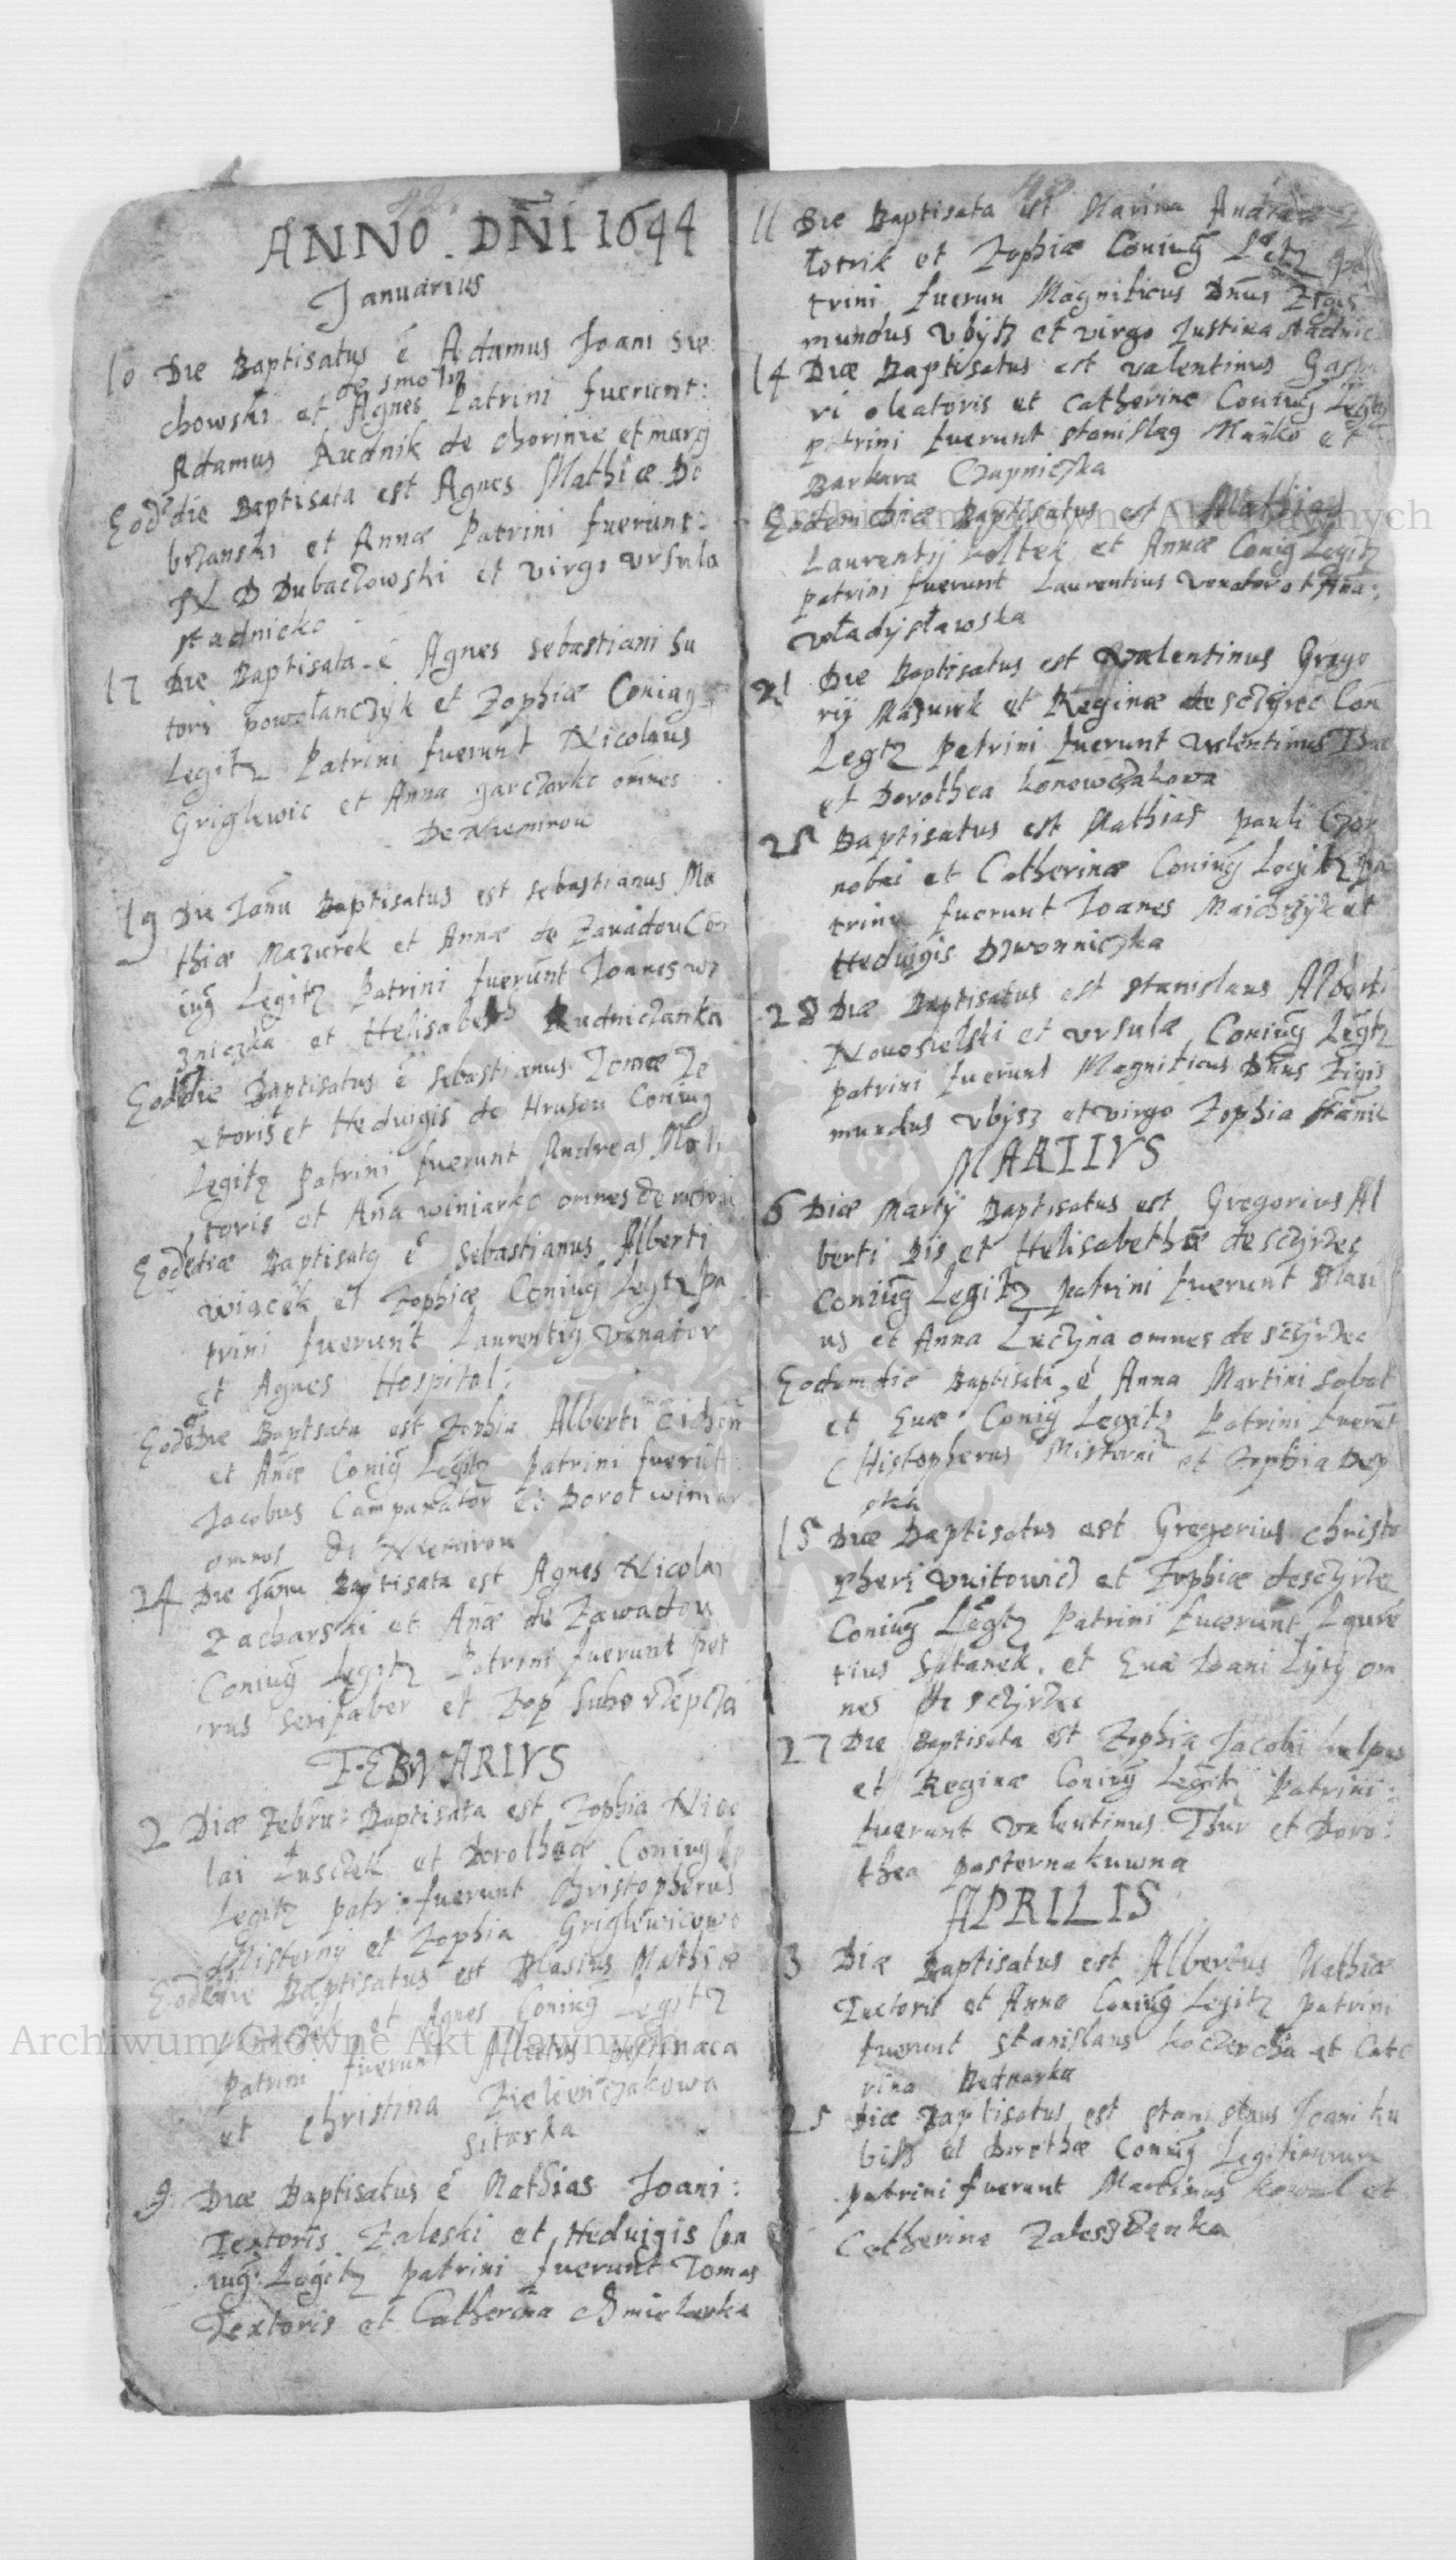 ANNO. DÑI 1644
Januarius
10 Die Baptisatus ē Adamus Joani Sie
de smolin
chowski et Agnes Patrini fuerunt:
Adamus Rudnik de chorinie et
Eodē die Baptisata est Agnes Mathiæ Do
brzanski et Annæ Patrini fuerunt:
N D Dubaczowski et virgo Ursula
stadnicko
17 Die Baptisata ē Agnes Sebastiani Su
tori powałanczyk et Zophiæ Coniug
Legitz Patrini fuerunt Nicolaus
Griglewic et Anna garczarka omnes
De Niemirow
19 Die Janu Baptisatus est sebastianus Ma
thiæ Mazurek et Annæ de Zawadou Con
iug Legitz Patrini fuerunt Joannes wo
zniczka et Helisabeth Rudniczanka
Eodē die Baptisatus ē Sebastianus Tomæ Te
xtoris et Heduigis de Hrusou Coniug
Legitz Patrini fuerunt Andreas Moli
toris et Aña winiarka omnes de
Eodē diæ Baptisatq ē Sebastianus Alberti
Wiącek et Zophiæ Coniug Legtz pa
trini fuerunt Laurentig venator
et Agnes Hospital:
Eodē Die Baptsata est Zophia Alberti
et Añæ Coniũg Legtz patrini fuerũt
Jacobus Camparator et Dorot winiar
omnes De Niemirou
24 Die Janu Baptisata est Agnes Nicolai
Zacharski et Añæ de Zawadou
Coniug Legitz Patrini fuerunt Pet
rus serifaber et Zop
FEBRVARIVS
2 Diæ Febru: Baptisata est Zophia Nico
lai Tusczek et Dorotheæ Coniug
Legitz patr: fuerunt Christopherus
Misterny et Zophia Griglewicowa
Eodē die Baptisatus est Blasius Mathiæ
et Agnes Coniũg Legitz
Patrini fuerunt Albertus
et Christina Zieleniczakowa
sitarka
9 Diæ Baptisatus ē Mathias Joani:
Textoris Zaleski et Heduigis Con
iug: Legitz patrini fuerunt Tomas
Textoris et Catherina
11 Die Baptisata est Marina Andreæ
Lotrik et Zophiæ Coniug Legtz pa
trini fuerun Magnificus Dñus Zigis
mundus Vbysz et virgo Justina stadnic
14 Diæ Baptisatus est valentinus Gaspa
ri oleatoris et Catherine Coniug Legtz
patrini fuerunt stanislaq Mañko et
Barbara Czapniczka
Eodem diæ Baptisatus est Mathias
Laurentij koltek et Annæ Coniug Legitz
patrini fuerunt Laurentius venator et Aña:
Władysławska
21 Die Baptisatus est Valentinus Grego
rij Mazurek et Reginæ de sczyrec Con
Legtz patrini fuerunt valentinus
et Dorothea konowczakowa
25 Baptisatus est Mathias pauli Czor
nobai et Catherinæ Coniug Legitz pa
trini fuerunt Joanes Maichrzyk et
Heduigis Dzwonniczka
28 Diæ Baptisatus est stanislaus Alberti
Nouosielski et Vrsulæ Coniug Legtz
patrini fuerunt Magnificus Dñus Zigis
mundus Vbysz et virgo Zophia
MARTIVS
6 Diæ Martij Baptisatus est Gregorius Al
berti Bis et Helisabethæ de sczyrzec
Coniug Legitz patrini fuerunt Stani
us et Anna Luczyna omnes de sczyrzec
Eodem die Baptisata ē Anna Martini Sobot
et Euæ Coniug Legitz Patrini fuerũt
CHistopherus Misterni et Zophia
15 Diæ Baptisatus est Gregorius christo
pheri Vuitowic et Zophiæ de sczyrzec
Coniug Legtz Patrini fuerunt Laurē
tius Sobanek. et Eua Joani Lysy om
nes de sczyrzec
27 Die Baptisata est Zophia Jacobi kulpas
et Reginæ Coniug Legitz Patrini:
fuerunt valentinus Thur et Doro:
thea pasternakuwna
APRILIS
3 Diæ Baptisatus est Albertus Mathiæ
Textoris et Anna Coniug Legitz patrini
fuerunt stanislaus et Cate
rina Bednarka
25 Diæ Baptisatus est stanislaus Joani ku
bisz et Dorothæ Coniug Legitimorum
patrini fuerunt Martinus kowal et
Catherina Zaleszczanka
Archiwum Główne Akt Dawnych
Archiwum Główne Akt Dawnych